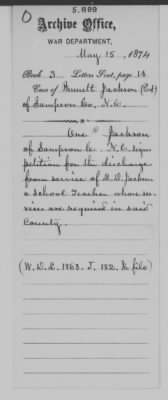 5.899
Archive Office,
WAR DEPARTMENT,
May 15, 1874
Book 3 Letters Sent, page 14
Case of Jackson
of Sampson Co. N.C.
One Jackson
of Sampson Co. N.C. signs
petition for the discharge
from service of Jackson
a School Teacher whose ser-
vices are required in said
County.
(W.D.L. 1863. J. 182. file)